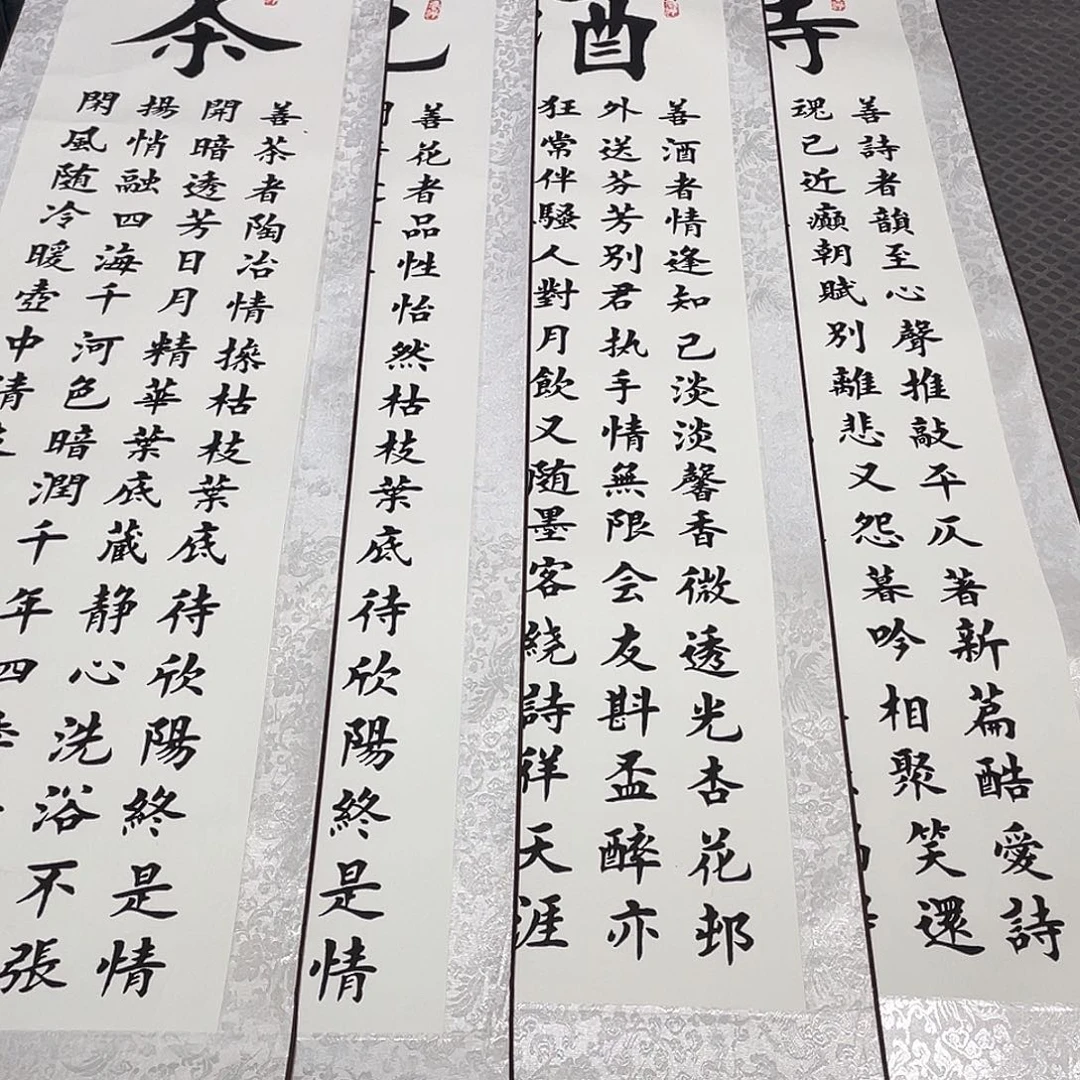 善詩者韻至心聲推敲平仄著新篇酷愛詩
魂已近癲朝賦別離悲又怨暮吟相聚笑還
善酒者情逢知己淡淡馨香微透光杏花邨
外送芬芳別君执手情無限会友斟盃醉亦
狂常伴騷人對月飲又随墨客繞詩徉天涯
善花者品性怡然枯枝葉底待欣陽終是情
茶
善茶者陶冶情操枯枝葉底待欣陽終是情
開暗透芳日月精華葉底蔵静心洗浴不張
揚悄融四海千河色暗潤千年四
閑風随冷暖壺中清